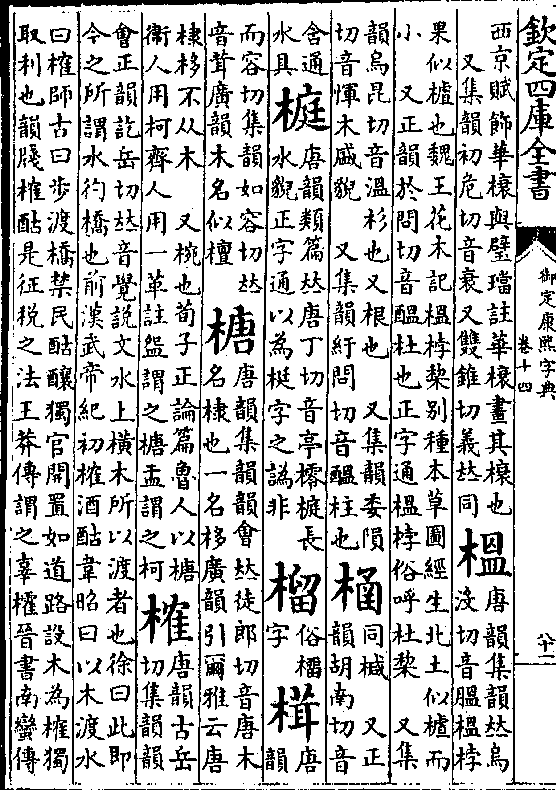 欽定四庫全書
御定康熙字典
卷十四
西京賦飾華榱與璧璫註華榱畫其榱也
又集韻初危切音衰又雙錐切義𠀤同
榲
唐韻集韻𠀤烏
没切音膃榲桲
果似樝也魏王花木記榲桲棃别種本草圖經生北土似樝而
小 又正韻於問切音醖杜也正字通榲桲俗呼杜棃 又集
韻烏昆切音溫杉也又根也 又集韻委隕
切音惲木盛貌 又集韻紆問切音醖柱也
㮀
同椷 又正
韻胡南切音
舍通
水具
榳
唐韻類篇𠀤唐丁切音亭樳榳長
水貌正字通以為梃字之譌非
榴
俗橊
字
榵
唐
韻
而容切集韻如容切𠀤
音茸廣韻木名似檀
榶
唐韻集韻韻會𠀤徒郎切音唐木
名棣也一名栘廣韻引爾雅云唐
棣栘不从木 又椀也荀子正論篇魯人以榶
衛人用柯齊人用一革註盌謂之榶盂謂之柯
榷
唐韻古岳
切集韻韻
會正韻訖岳切𠀤音覺說文水上橫木所以渡者也徐曰此即
今之所謂水彴橋也前漢武帝紀初榷酒酤韋昭曰以木渡水
曰榷師古曰步渡橋禁民酤釀獨官開置如道路設木為榷獨
取利也韻牋榷酤是征税之法王莽傳謂之辜榷晉書南蠻傳